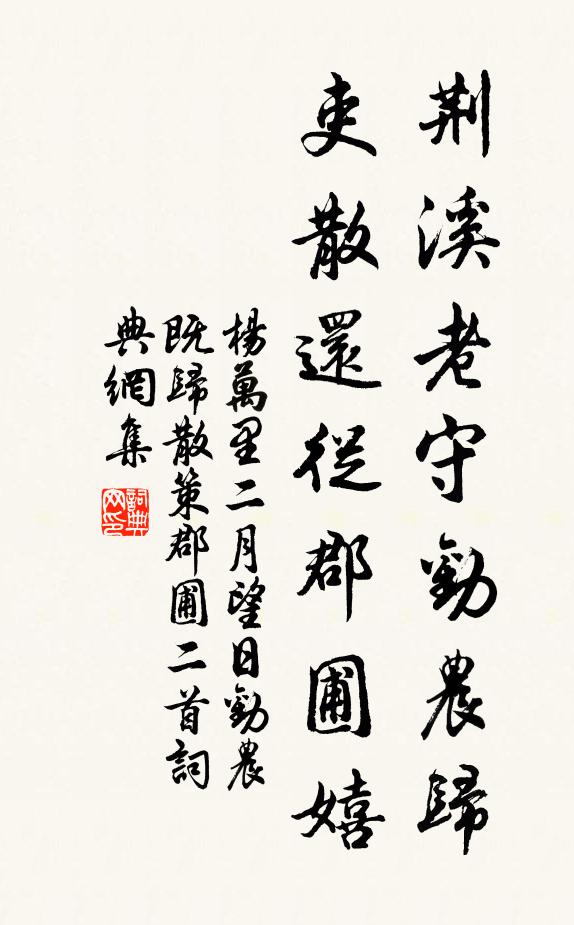 荆溪老守勸農歸
吏散還從郡圃嬉
楊萬里二月望日勸農
既歸散策郡圃二首詞
典網集
詞典
网印